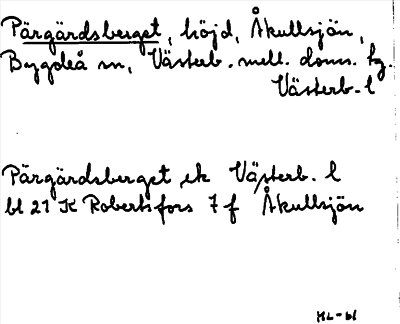 Pärgärdsberget, höjd, Åkullsjön,
Bygdeå sn, Västerb. mell. doms. fg.
Västerb. l
Pärgärdsberget ek Västerb. l
bl 21 K Robertsfors 7 f Åkullsjön
HL-bl